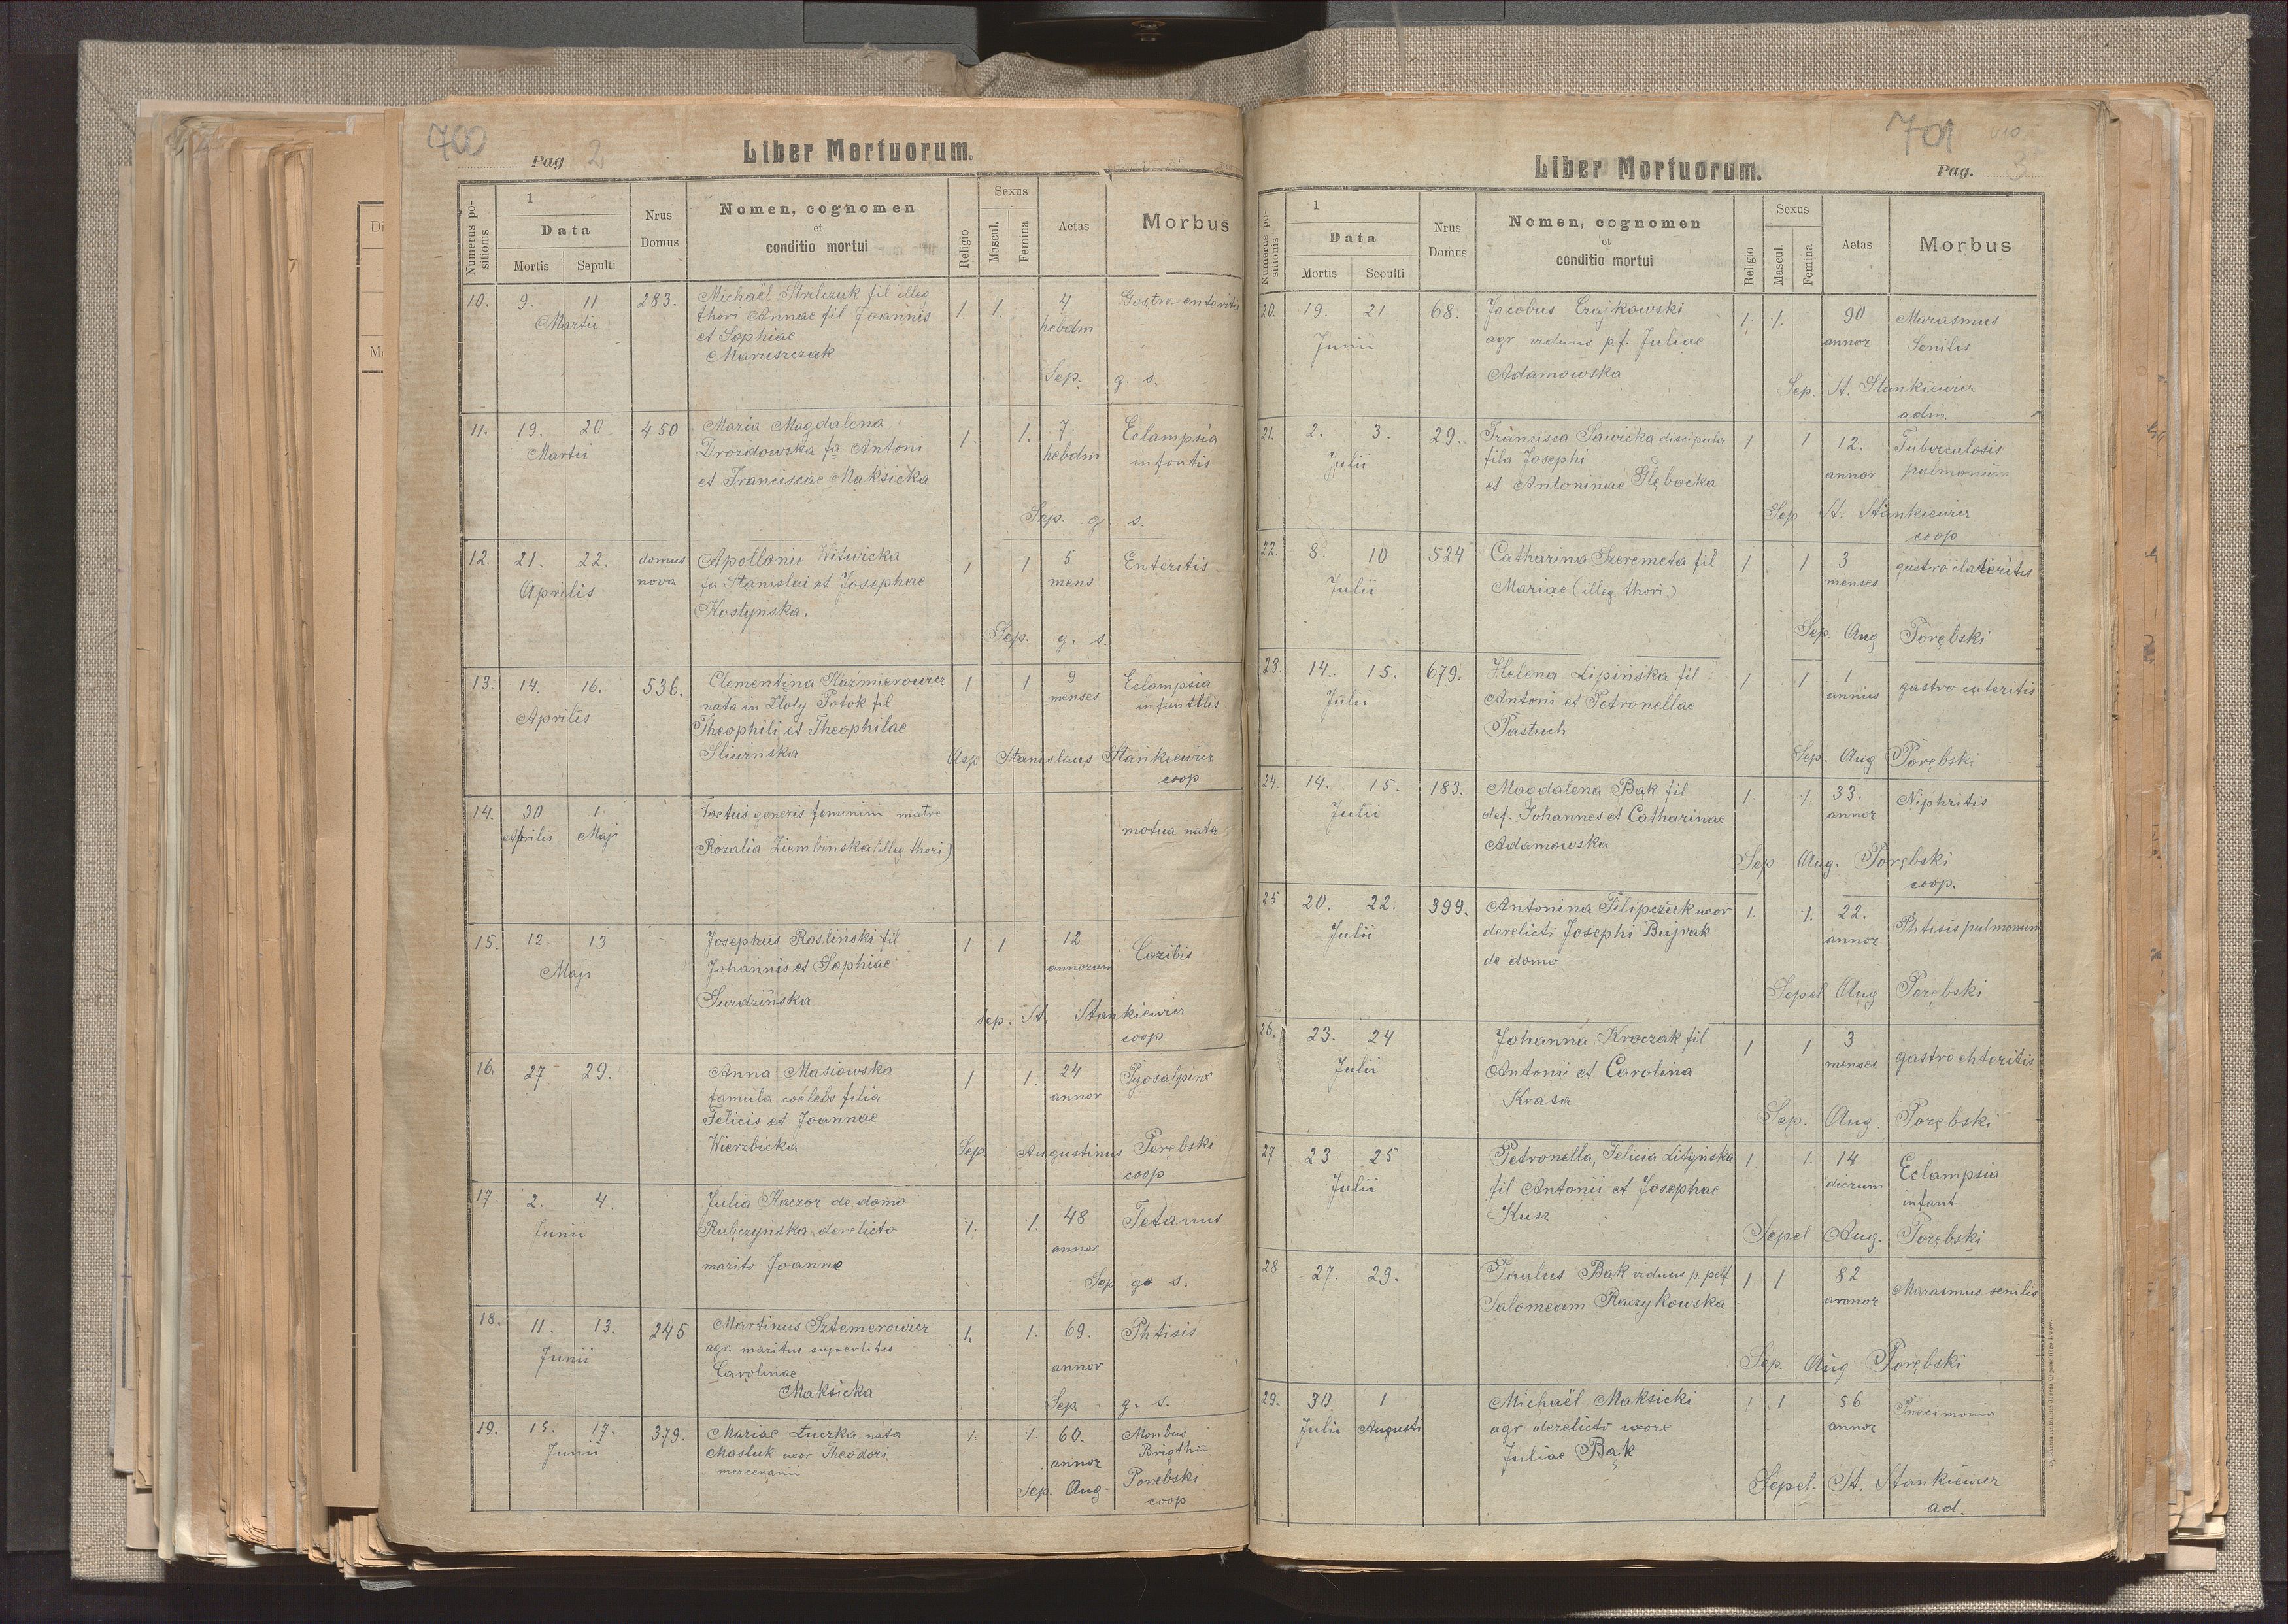 700
Pag 2
Liber Mortuorum.
Numerus po-
sitionis
1
Data
Mortis Sepulti
Nrus
Domus
Nomen, cognomen
et
conditio mortui
Religio
Sexus
Mascul.
Femina
Aetas
Morbus
10. 9. 11 283. Michaël Strilczuk fil illeg 1 1. 4 Gastro-enteritis
Martii thori Annae fil Joannis hebdm
et Sophiae
Maruszczak
Sep. g. s.
11. 19. 20 450 Maria Magdalena 1. 1. 7. Eclampsia
Martii Drozdowska fa Antoni hebdm infantis
et Franciscae Maksicka
Sep. g. s.
12. 21. 22. domus Apollonie Witwicka 1 1 5 Enteritis
Aprilis nova fa Stanislai et Josephae mens
Kostynska.
Sep. g. s.
13. 14. 16. 536. Clementina Kaźmierowicz 1 1 9 Eclampsia
Aprilis nata in Złoty Potok fil menses infantilis
Theophili et Theophilae
Sliwinska Asp Stanislaus Stankiewicz
coop
14. 30 1. Foetus generis feminini matre
Aprilis Maji Rozalia Ziembinska (illeg thori) motua nata
15. 12. 13 Josephus Roslinski fil 1 1 12
Maji Johannis et Sophiae annorum
Surdzińska
sep. St. Stankiewicz
coop
16. 27. 29. Anna Masiowska 1 1. 24 Pyosalpinx
famula coelebs filia annor
Felicis et Joannae
Wierzbicka Sep. Augustinus Porębski
coop
17. 2. 4. Julia Kaczor de domo
Junii Rubczyńska derelicto 1. 1. 48 Tetanus
marito Joanne annor
Sep g s.
18. 11. 13. 245 Martinus Sztemerowicz 1. 1. 69. Phtisis
Junii agr. maritus superstitis annor
Carolinae
Maksicka
Sep g. s.
19. 15. 17. 379. Mariae Łuczka nata 1. 1. 60. Morbus
Junii Masluk uxor Theodori annor Brigthii
mercenarii
Sep. Aug. Porebski
coop
701
Liber Mortuorum.
Pag. 3
Numerus po-
sitionis
1
Data
Mortis Sepulti
Nrus
Domus
Nomen, cognomen
et
conditio mortui
Religio
Sexus
Mascul.
Femina
Aetas
Morbus
20. 19. 21 68. Jacobus Czajkowski 1. 1. 90 Marasmus
Junii agr viduus p.f. Juliae annor Senilis
Adamowska
Sep. St. Stankiewicz
adm
21. 2. 3. 29. Francisca Sawicka discipula 1 1 12. Tuberculosis
Julii filia Josephi annor pulmonum
et Antoninae Głębocka
Sep St. Stankiewicz
coop
22. 8. 10 524 Catharina Szeremeta fil 1 1 3
Julii Mariae (illeg thori.) menses
Sep. Aug Porębski
23. 14. 15. 679. Helena Lipińska fil 1 1 1 gastro enteritis
Julii Antoni et Petronellae annus
Pastuch
Sep. Aug Porębski
24. 14. 15. 183. Magdalena Bąk fil 1. 1. 33. Niphritis
Julii def. Johannes et Catharinae annor
Adamowska
Sep Aug. Porębski
coop.
25 20. 22. 399. Antonina Filipczuk uxor 1. 1. 22. Phtisis pulmonum
Julii derelicti Josephi Bujrak annor
de domo
Sepel Aug Porębski
26. 23. 24 Johanna Kroczak fil 1 1 3 gastroenteritis
Julii Antonii et Carolina menses
Krasa
Sep. Aug. Porębski
27 23 25 Petronella, Felicia Lityńska 1. 1. 14 Eclampsia
Julii fil Antonii et Josephae dierum infant
Kusz
Sepel Aug. Porębski
28 27. 29. Paulus Bąk viduus p. 1 1 82 Marasmus senilis
Salomeam Raczykowska annor
Sep. Aug Porębski
29. 30. 1 Michaël Maksicki 1 1 56 Pneumonia
Julii Augusti agr derelicti uxore annor
Juliae Bąk
Sepel. St. Stankiewicz
ad.